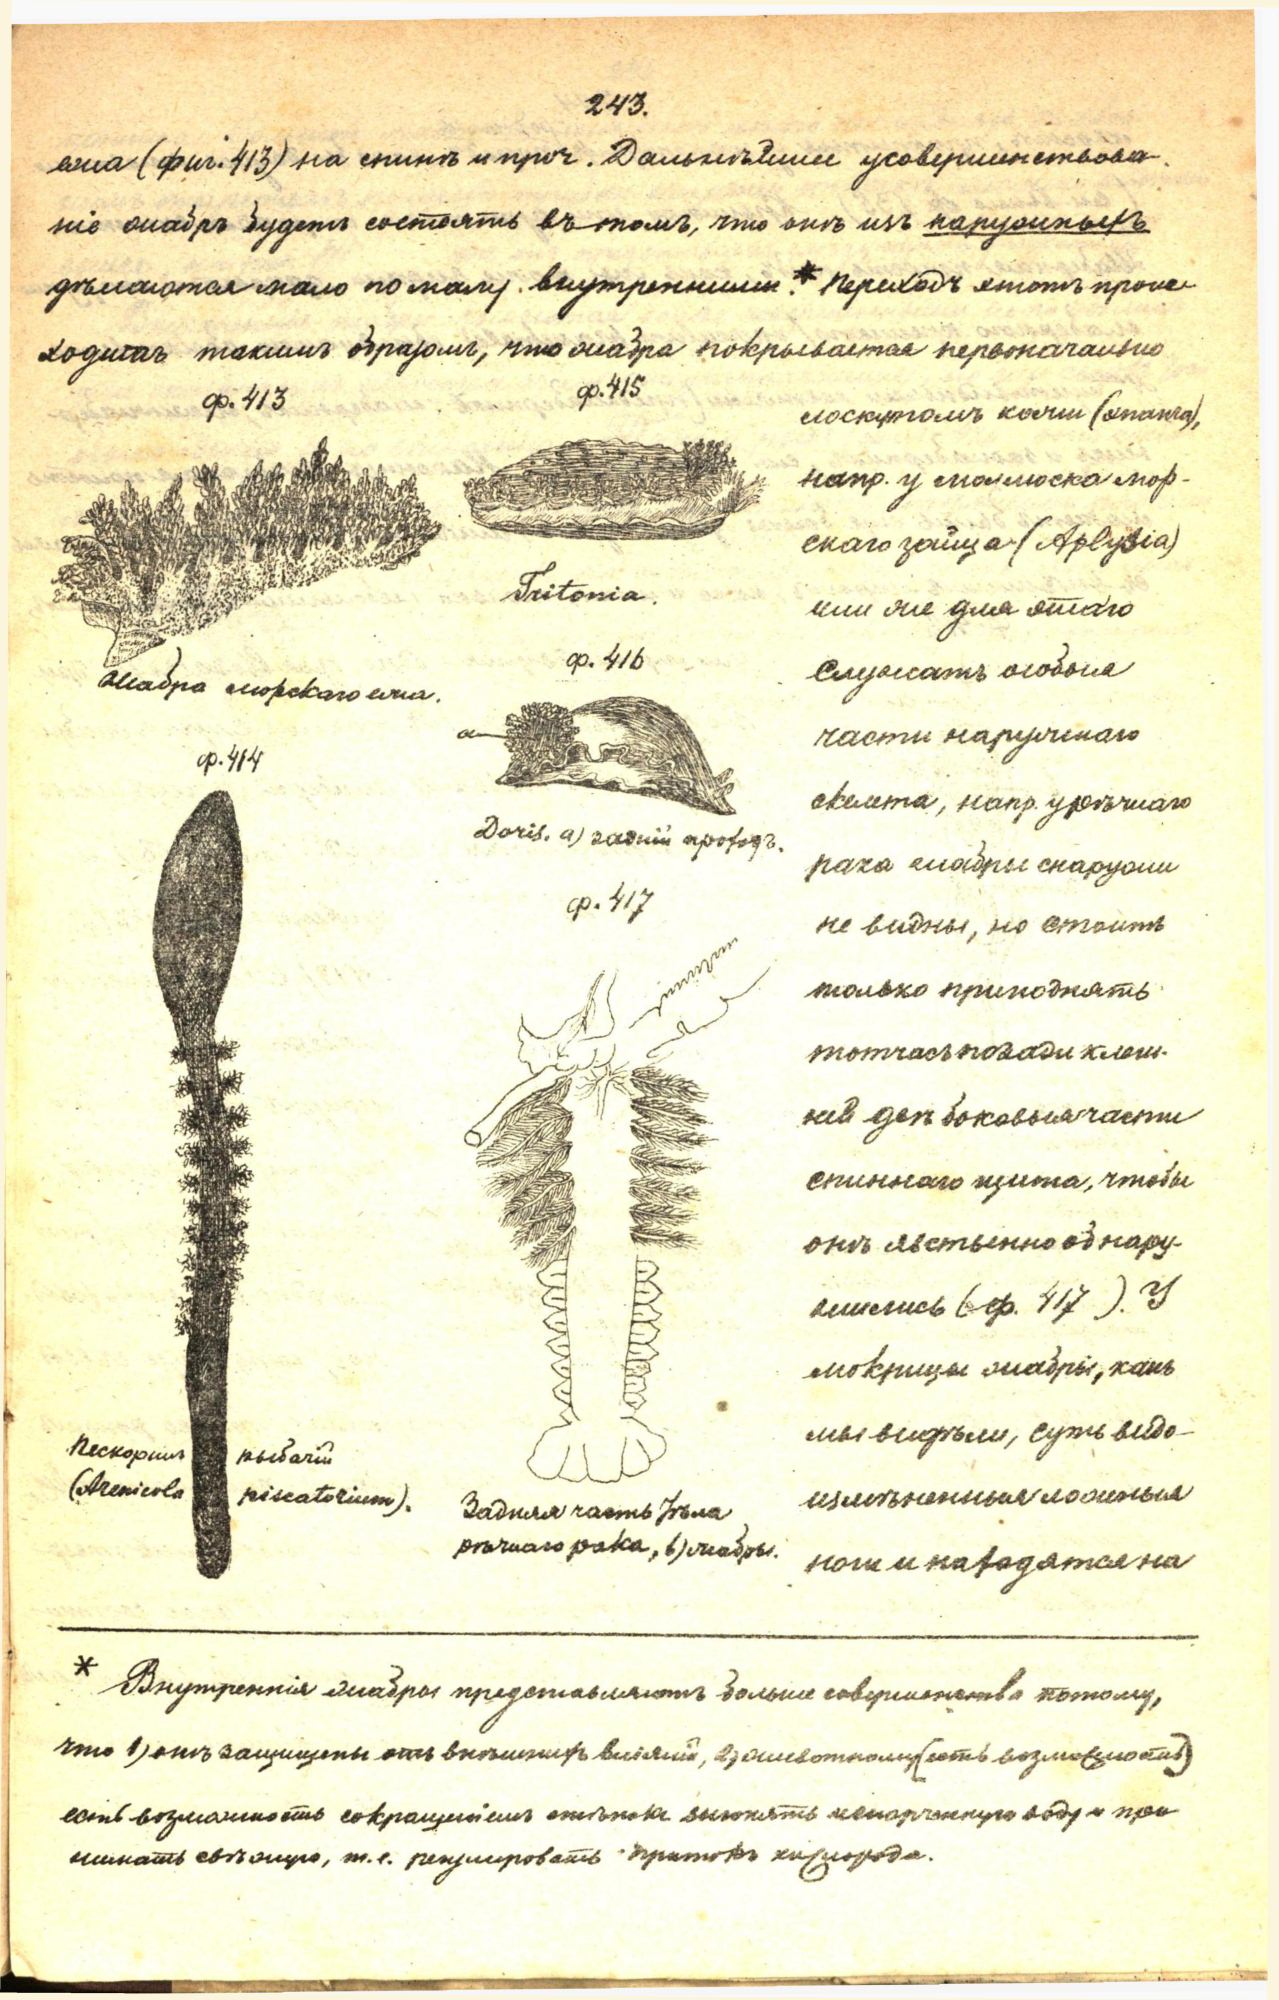 243.
ежа (фиг. 413) на спинѣ и проч. Дальнѣйшее усовершенствова-
ніе жабръ будетъ состоять въ томъ, что онѣ изъ наружныхъ
дѣлаются мало по малу внутренними.* Переходъ этотъ проис-
ходитъ такимъ образомъ, что жабра покрывается первоначально
ф. 413
ф. 415
Tritonia.
Жабра морского ежа.
ф. 416
a
Doris. a) задній проходъ.
ф. 414
ф. 417
Пескорылъ рыбачій
(Arenicola piscatorium).
Задняя часть тѣла
рѣчнаго рака, b) жабры.
лоскутомъ кожи (эпанча),
напр. у моллюска мор-
скаго зайца (Aplysia)
или же для этаго
служатъ особыя
части наружнаго
скелета, напр. у рѣчнаго
рака жабры снаружи
не видны, но стоитъ
только приподнять
тотчасъ позади клеш-
ней двѣ боковыя части
спиннаго щита, чтобы
онѣ явственно обнару-
жились (ф. 417 ). У
мокрицы жабры, какъ
мы видѣли, суть видо-
измѣненныя ложныя
ноги и находятся на
* Внутреннія жабры представляютъ больше совершенства потому,
что 1) онѣ защищены отъ внѣшнихъ вліяній, 2) животному (есть возможность)
есть возможность сокращеніемъ стѣнокъ выгонять испорченную воду и при-
нимать свѣжую, т.е. регулировать притокъ кислорода.